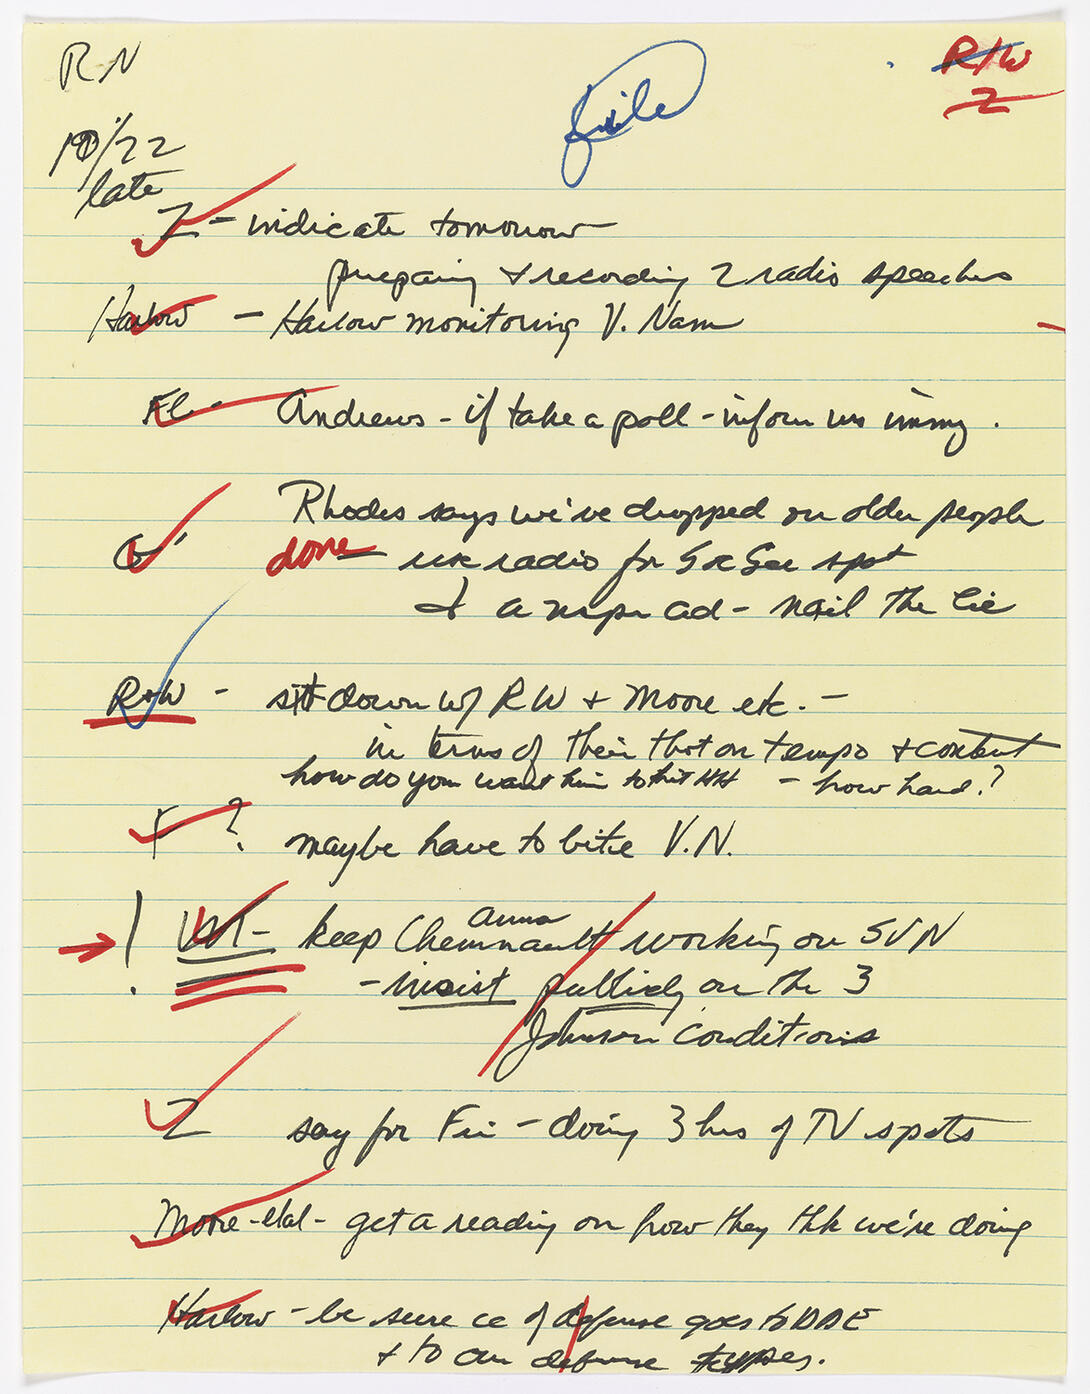 RN
file
R/W
Z
10/22
late
Z - indicate tomorrow
preparing + recording 2 radio speeches
Harlow - Harlow monitoring V. Nam
FL - Andrews - if take a poll - inform us immy.
Rhodes says we've dropped on older people
G' done - use radio for Soc Sec spot
+ a nspr ad - nail the lie
R+W - sit down w/ RW + Moore etc. -
in terms of their thot on tempo + content
how do you want him to hit HH - how hard?
F ? maybe have to bite V.N.
anna
! keep Chennault working on SVN
- insist publicly on the 3
Johnson conditions
Z say for Fri - doing 3 hrs of TV spots
Moore - etal - get a reading on how they thk we're doing
Harlow - be sure cc of defense goes to DDE
+ to our defense types.